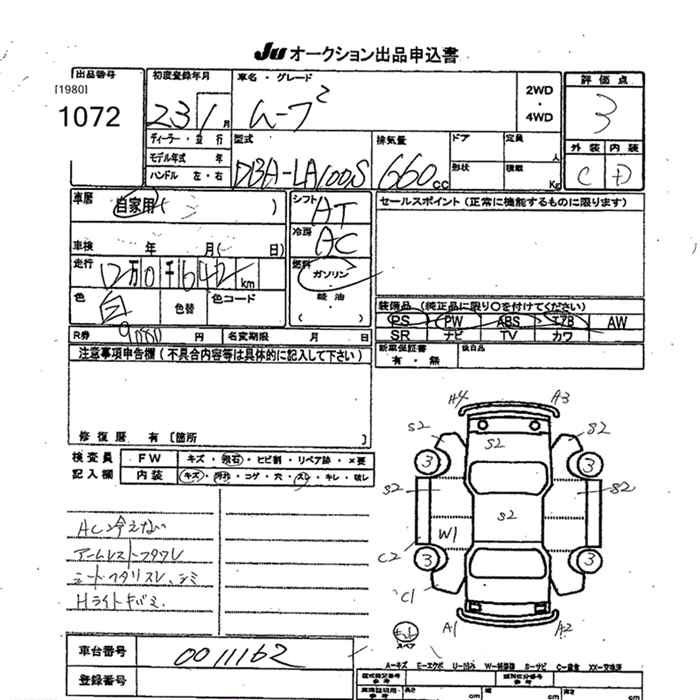 Ju オークション出品申込書
出品番号 初度登録年月 車名・グレード 2WD・4WD 評価点
[1980]
1072 23 1月 ムーブ 3
ディーラー・並行 型式 排気量 ドア 定員 人 外装 内装
モデル年式 年 DBA-LA100S 660cc 形状 積載 Kg C D
ハンドル 左・右
車歴 自家用( ) シフト AT セールスポイント(正常に機能するものに限ります)
冷房 AC
車検 年 月( 日)
走行 12万0千642km 燃料 ガソリン
軽油
( )
色 白 色替 色コード 装備品(純正品に限り○を付けてください)
PS PW ABS エアB AW
SR ナビ TV カワ
R券 円 名変期限 月 日 新車保証書 有・無 後日品
注意事項申告欄(不具合内容等は具体的に記入して下さい)
修復歴 有〔箇所 〕
検査員 FW キズ・飛石・ヒビ割・リペア跡・×要
記入欄 内装 キズ・汚れ・コゲ・穴・スレ・キレ・破レ
A4 A3
S2 S2 S2
3 3
S2 S2 S2
W1
C2 3 3
C1
A1 A2
スペア
AC冷えない
アームレストフタワレ
シートヘタリスレ、シミ
Hライトキバミ
車台番号 0011162
登録番号
A-キズ E-エクボ U-凹み W-補修跡 S-サビ C-腐食 XX-交換済